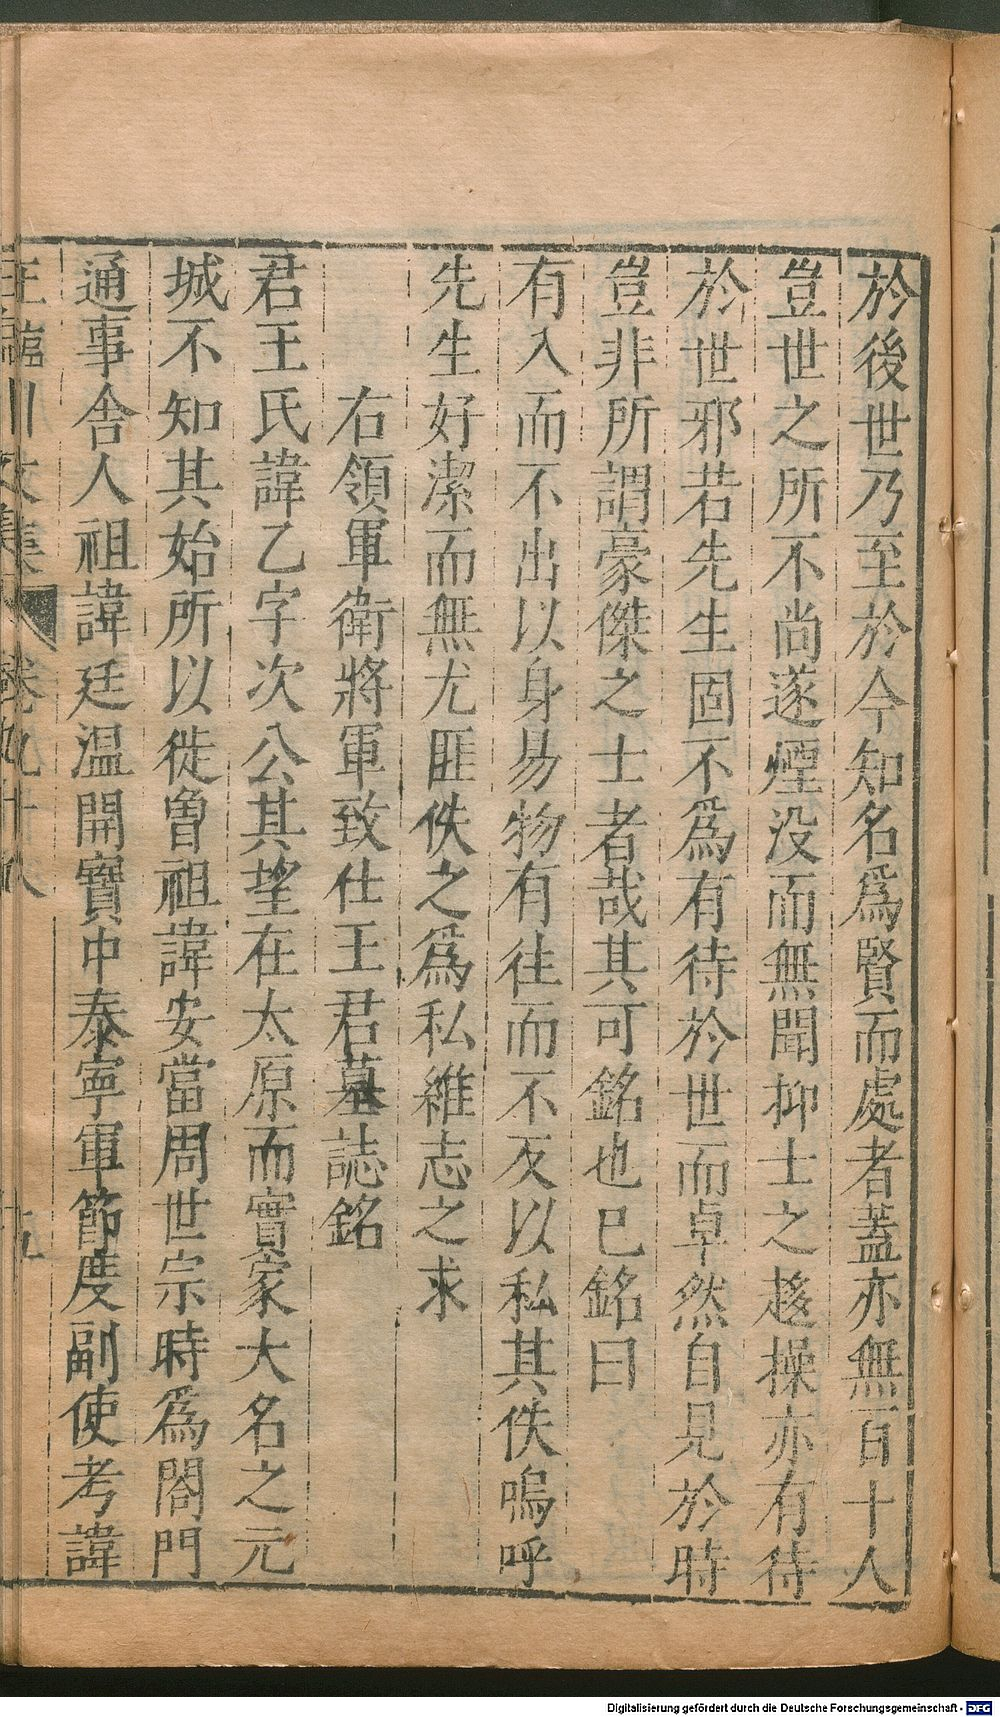 於後世乃至於今知名爲賢而處者蓋亦無百十人
豈世之所不尚遂煙没而無聞抑士之趍操亦有待
於世邪若先生固不爲有待於世而卓然自見於時
豈非所謂豪傑之士者哉其可銘也已銘曰
有入而不出以身易物有徃而不反以私其佚嗚呼
先生好潔而無尤匪佚之爲私維志之求
右領軍衛將軍致仕王君墓誌銘
君王氏諱乙字次公其望在太原而實家大名之元
城不知其始所以徙曽祖諱安當周世宗時爲閤門
通事舎人祖諱廷温開寳中泰寧軍節度副使考諱
王臨川文集 卷九十八 十五
Digitalisierung gefördert durch die Deutsche Forschungsgemeinschaft - DFG